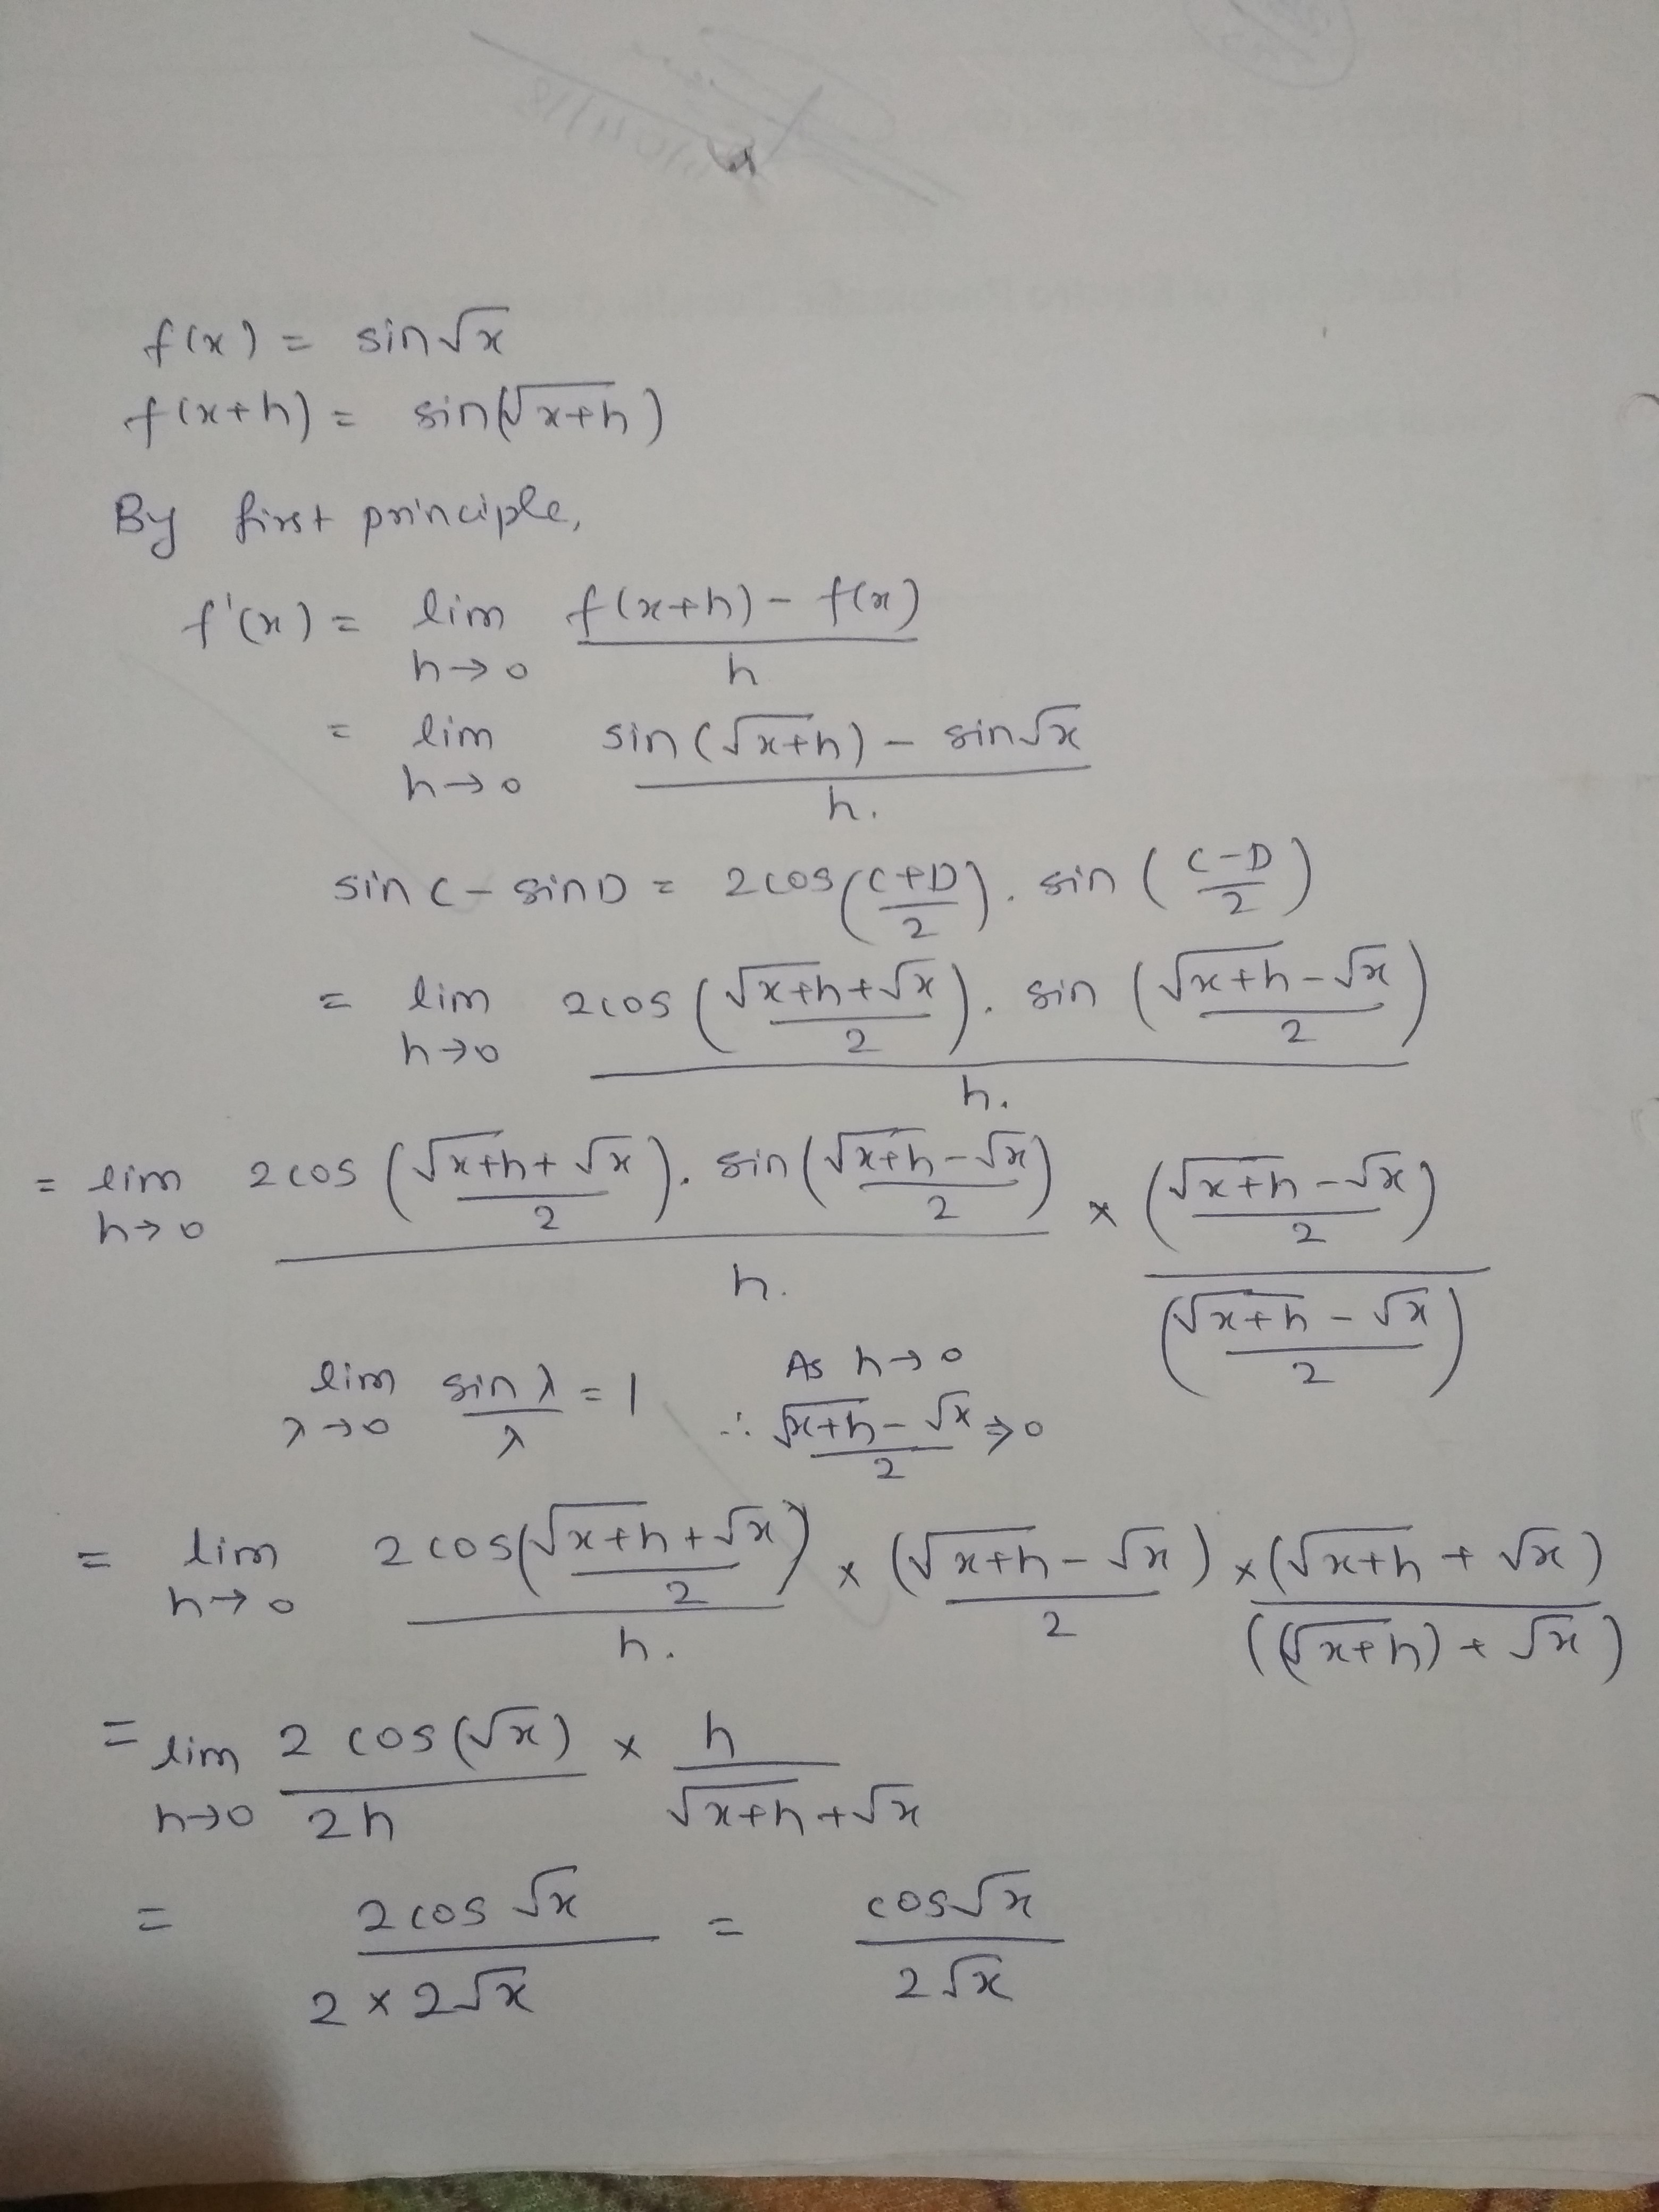 f(x) = sin√x
f(x+h) = sin(√(x+h))
By first principle,
f'(x) = lim h→0 (f(x+h) - f(x))/h
= lim h→0 (sin(√(x+h)) - sin√x)/h.
sin C - sin D = 2cos((C+D)/2). sin((C-D)/2)
= lim h→0 (2cos((√(x+h)+√x)/2). sin((√(x+h)-√x)/2))/h.
= lim h→0 (2cos((√(x+h)+√x)/2). sin((√(x+h)-√x)/2))/h. × ((√(x+h)-√x)/2)/((√(x+h)-√x)/2)
lim λ→0 sin λ/λ = 1 As h→0
∴ (√(x+h)-√x)/2 → 0
= lim h→0 (2cos((√(x+h)+√x)/2))/h. × (√(x+h)-√x)/2 × (√(x+h)+√x)/((√(x+h))+√x)
= lim h→0 (2 cos(√x))/2h × h/(√(x+h)+√x)
= (2cos√x)/(2×2√x) = (cos√x)/(2√x)